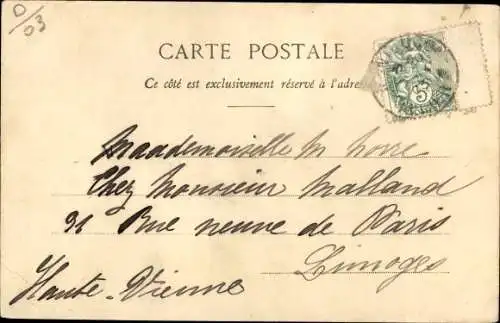 0/03
CARTE POSTALE
Ce côté est exclusivement réservé à l'adre
5
Maademoiselle M
Chez Monsieur Malland
31 Rue neuve de Paris
Limoges
Haute-Vienne